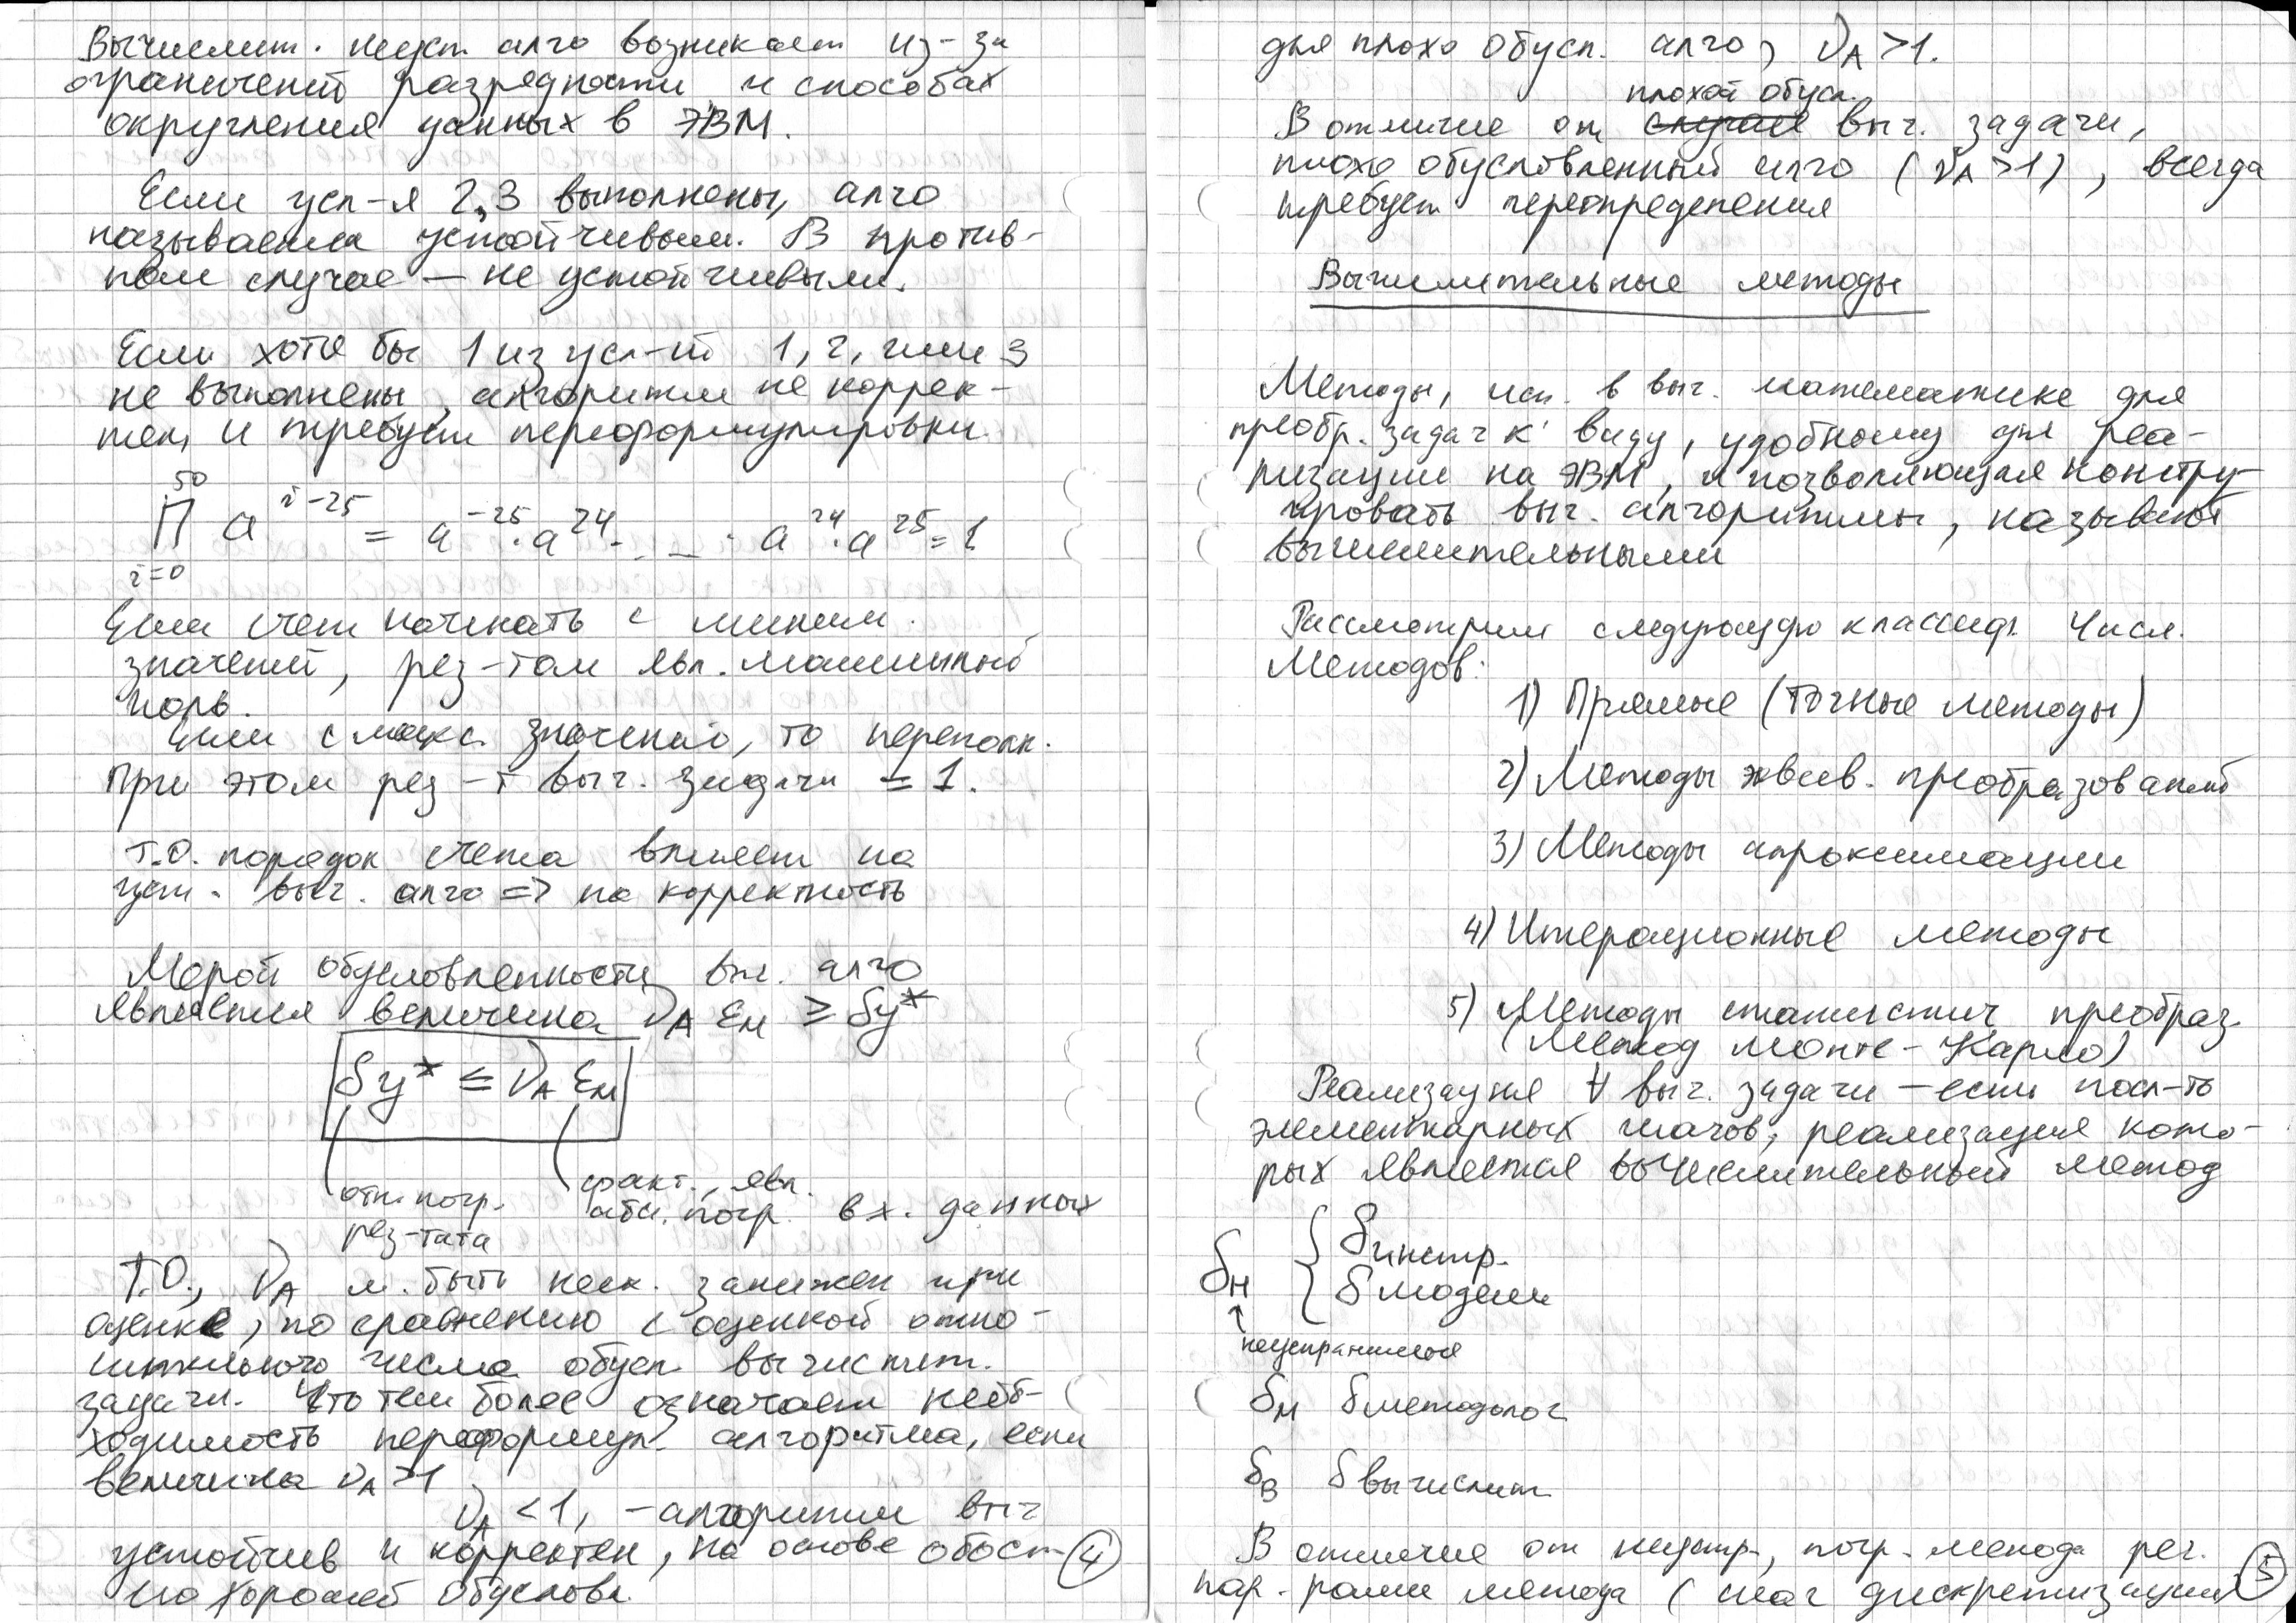 Вычислит. неуст. алго возникает из-за
ограничений разрядности и способах
округления данных в ЭВМ.
Если усл-я 2,3 выполнены, алго
называется устойчивым. В против-
ном случае — не устойчивым.
Если хотя бы 1 из усл-й 1, 2, или 3
не выполнены, алгоритм не коррек-
тен, и требует переформулировки.
50
П a^{i-25} = a^{-25} · a^{24} · ... · a^{24} · a^{25} = 1
i=0
Если счет начинать с миним.
значений, рез-том явл. машинный
ноль.
Если с макс. значений, то переполн.
При этом рез-т выч. задачи = 1.
Т.О. порядок счета влияет на
уст. выч. алго => на корректность
Мерой обусловленности выч. алго
является величина ν_A ε_м ≥ δy*
δy* ≤ ν_A ε_м
отн. погр. рез-тата
факт., явл. абс. погр. вх. данных
Т.О., ν_A м. быть неск. занижен при
оценке, по сравнению с оценкой отно-
сительного числа обусл. вычислит.
задачи. Что тем более означает необ-
ходимость переформул. алгоритма, если
величина ν_A >1
ν_A <1, - алгоритм выч
устойчив и корректен, на основе
его хорошей обусловл.
4
для плохо обусл. алго, ν_A >1.
плохой обусл.
В отличие от случая выч. задачи,
плохо обусловленный алго (ν_A >1), всегда
требует переопределения
Вычислительные методы
Методы, исп. в выч. математике для
преобр. задач к виду, удобному для реа-
лизации на ЭВМ, и позволяющая констру-
ировать выч. алгоритмы, называют
вычислительными
Рассмотрим следующую классиф. числ.
методов:
1) Прямые (точные методы)
2) Методы эквив. преобразований
3) Методы апроксимации
4) Итерационные методы
5) Методы статистич преобраз.
(Метод Монте-Карло)
Реализация ∀ выч. задачи — есть посл-ть
элементарных шагов, реализация кото-
рых является вычислительный метод
δ_н { δ инстр.
δ модели
↑
неустранимая
δ_м δ методолог
δ_в δ вычислит.
В отличие от неустр., погр. метода рег.
пар-рами метода (шаг дискретизации
5